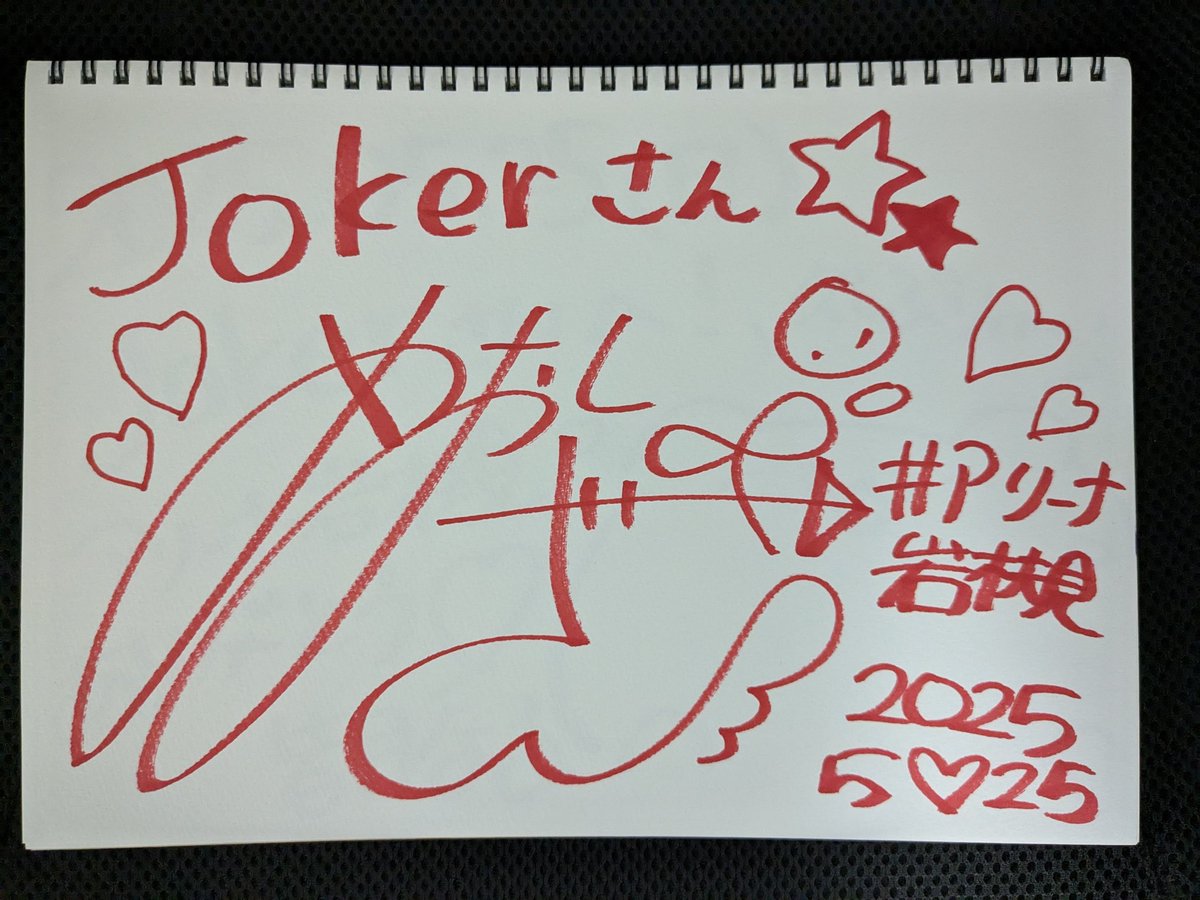 Jokerさん
#アリーナ
岩槻
2025
5♡25